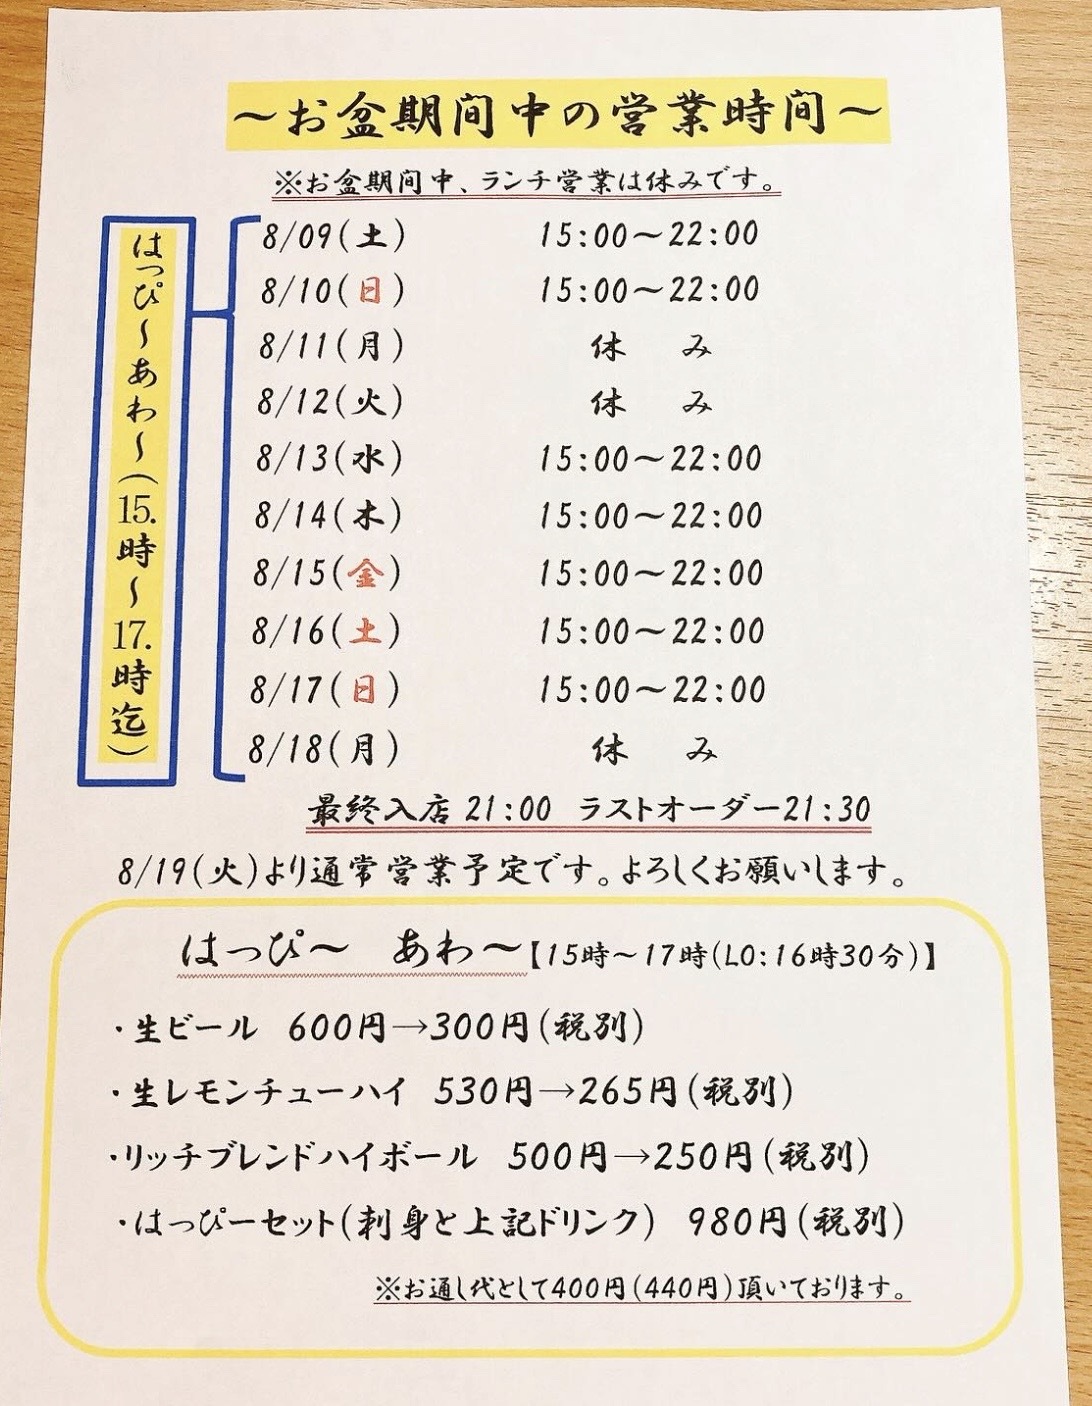 ～お盆期間中の営業時間～
※お盆期間中、ランチ営業は休みです。
はっぴ～あわ～(15.時～17.時迄)
8/09(土) 15:00～22:00
8/10(日) 15:00～22:00
8/11(月) 休 み
8/12(火) 休 み
8/13(水) 15:00～22:00
8/14(木) 15:00～22:00
8/15(金) 15:00～22:00
8/16(土) 15:00～22:00
8/17(日) 15:00～22:00
8/18(月) 休 み
最終入店 21:00 ラストオーダー21:30
8/19(火)より通常営業予定です。よろしくお願いします。
はっぴ～ あわ～【15時～17時(LO:16時30分)】
・生ビール 600円→300円(税別)
・生レモンチューハイ 530円→265円(税別)
・リッチブレンドハイボール 500円→250円(税別)
・はっぴーセット(刺身と上記ドリンク) 980円(税別)
※お通し代として400円(440円)頂いております。